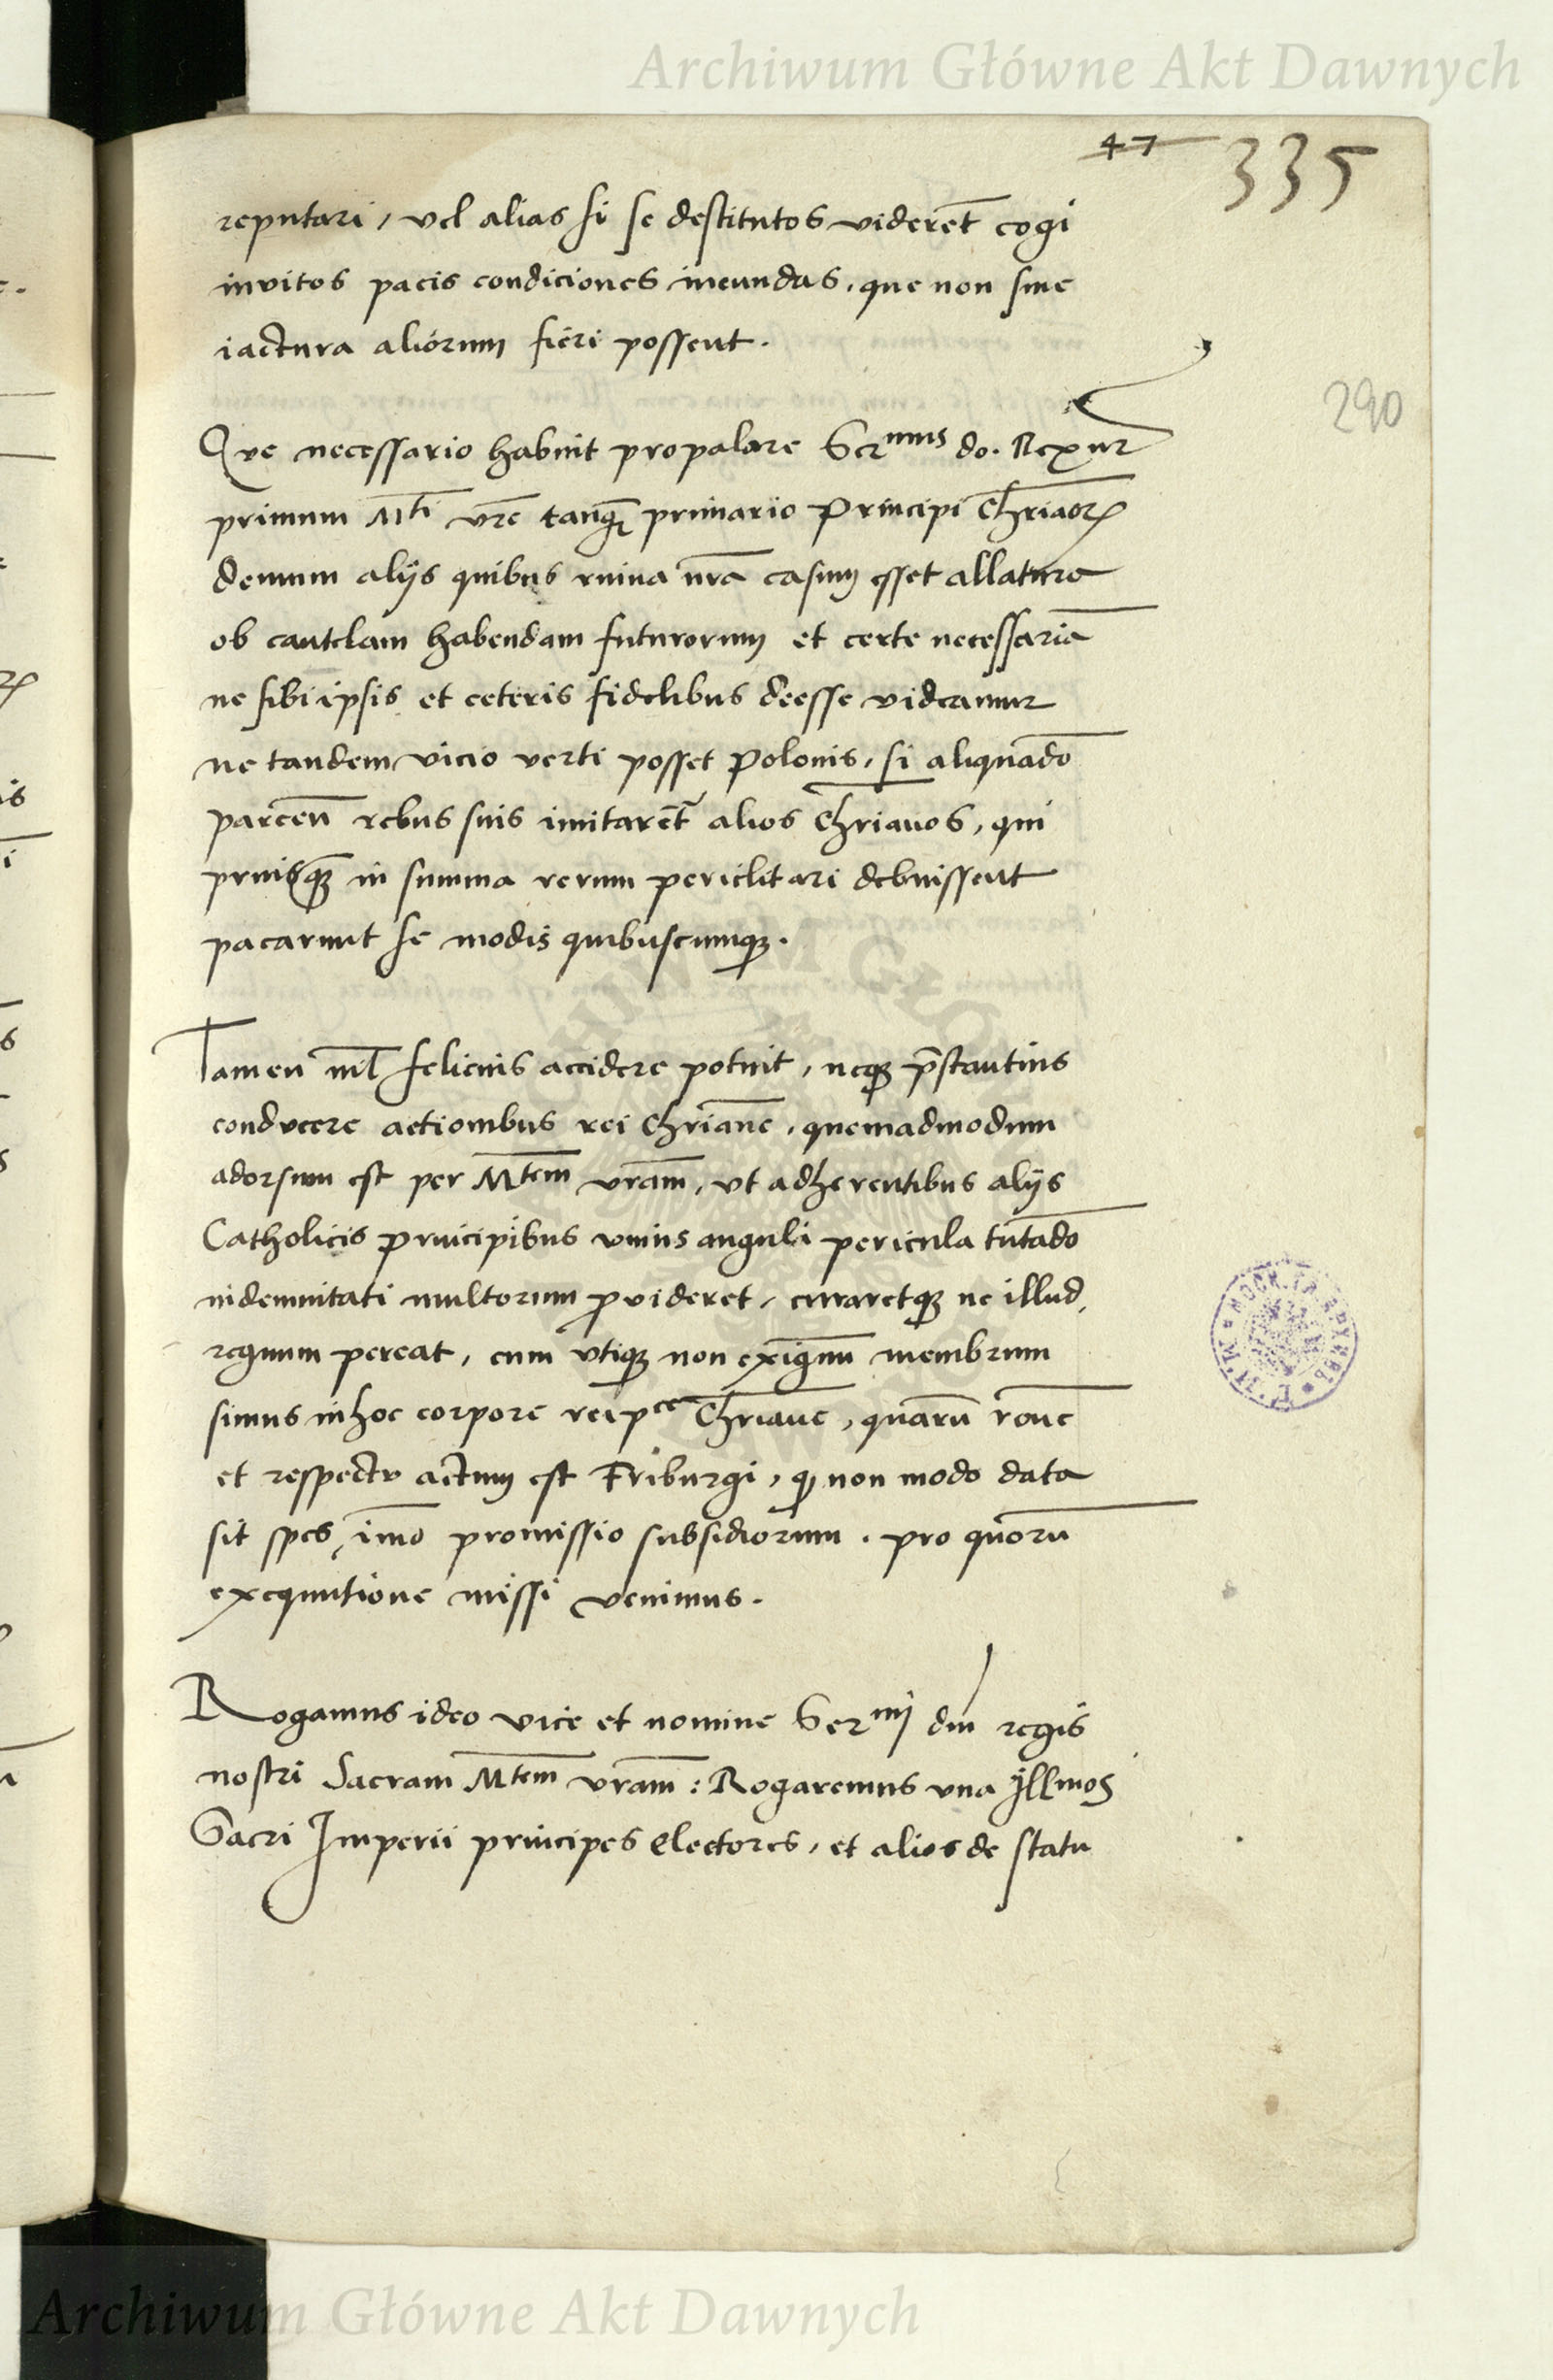 Archiwum Główne Akt Dawnych
47 335
290
reputari, vel alias si se destitutos viderēt cogi
invitos pacis condiciones ineundas, que non sine
iactura aliorum fieri possent.
Que necessario habuit propalare Ser^mus do. Rex nr̄
primum M^ti vr̄e tanq̄ primario Principi Chr̄iaoꝝ
demum alijs quibus ruina nr̄a casum esset allatura
ob cautelam habendam futurorum et certe necessariā
ne sibi ipsis et ceteris fidelibus deesse videamur
ne tandem vicio verti posset Polonis, si aliquādo
parceñ rebus suis imitarēt alios Chr̄ianos, qui
priusq̄ in summa rerum periclitari debuissent
pacarunt se modis quibuscumqꝫ.
Tamen nil̄ felicius accidere potuit, neqꝫ p̄stantius
conducere actionibus rei Chr̄iane, quemadmodum
adorsum est per M^tem vr̄am, vt adherentibus alijs
Catholicis principibus vnius anguli pericula tutādo
indemnitati multorum ꝓvideret, curaretqꝫ ne illud
regnum pereat, cum vtiqꝫ non exiguū membrum
simus in hoc corpore reip^ce Chr̄iane, quarū rōne
et respectu actum est Friburgi, ꝙ non modo data
sit spes, im̄o promissio subsidiorum, pro quorū
exequutione missi venimus.
Rogamus ideo vice et nomine Ser^mi dni regis
nostri Sacram M^tem vr̄am: Rogaremus vna Illmos
Sacri Imperii principes electores, et alios de statu
Archiwum Główne Akt Dawnych